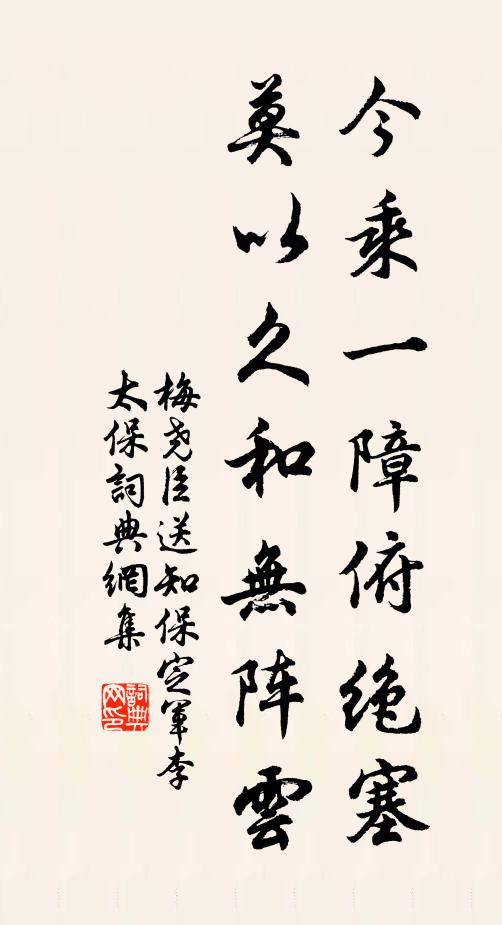 今乘一障俯绝塞
莫以久和無阵雲
梅尧臣送知保定軍李
太保詞典網集
詞典网印